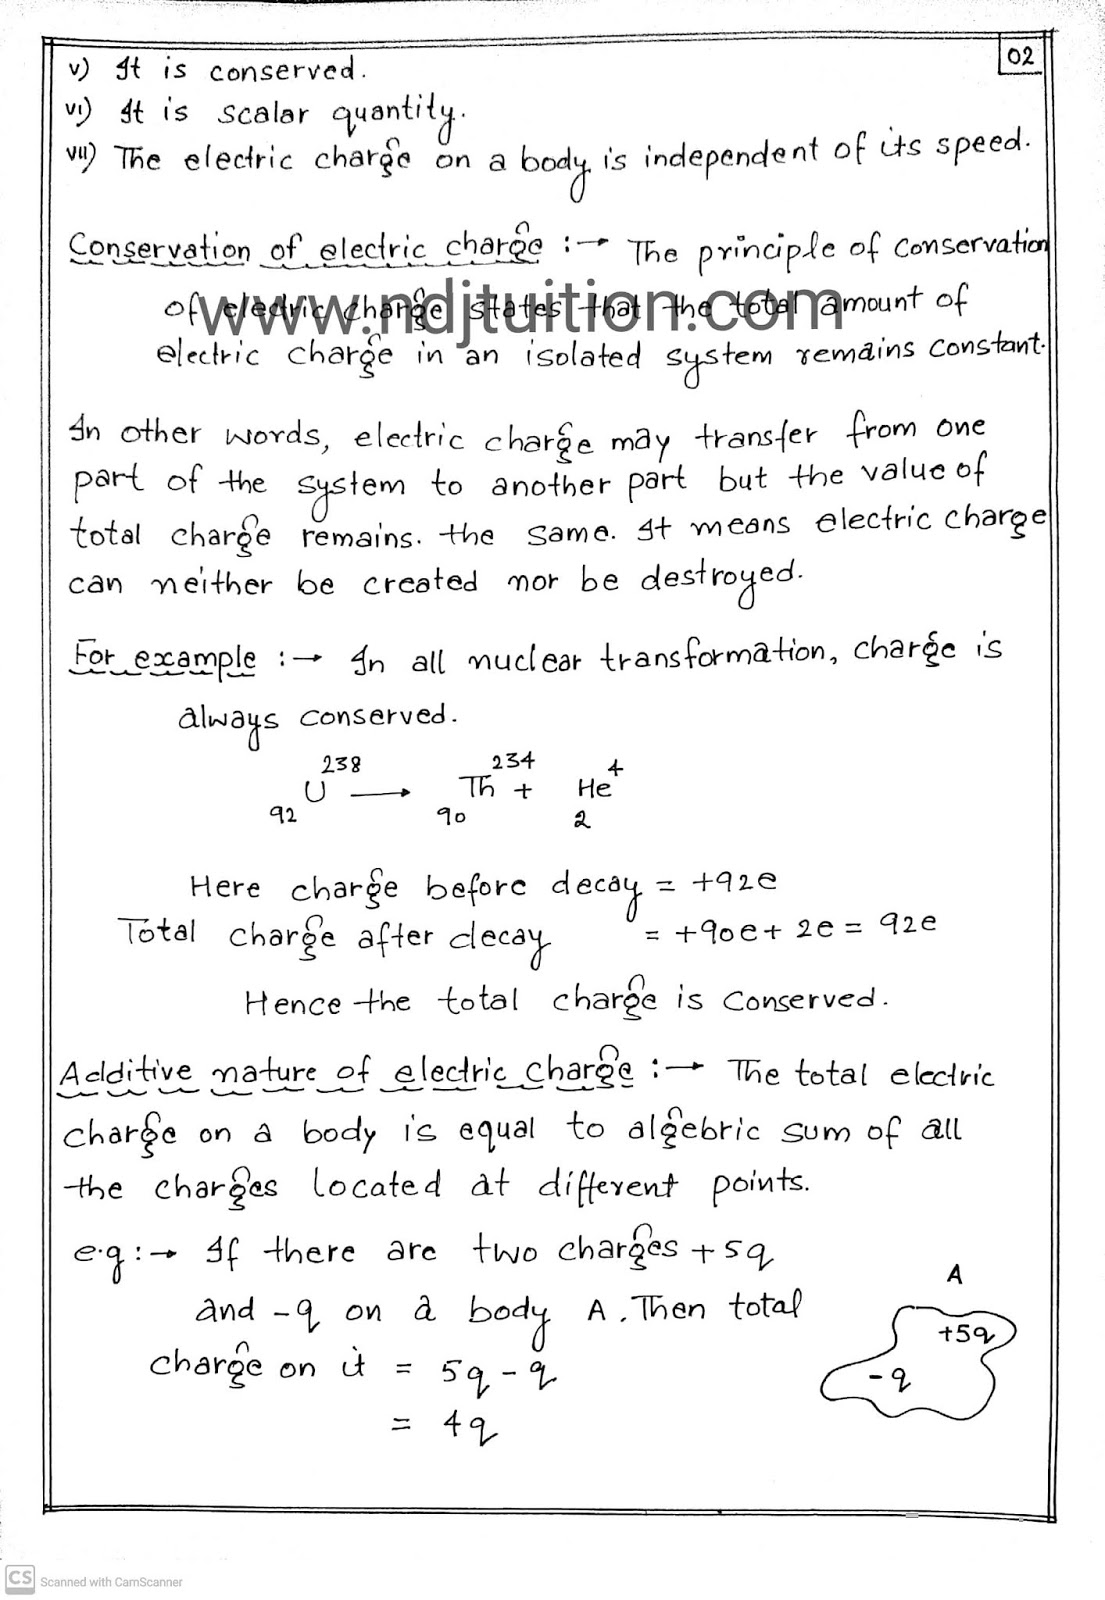 02
v) It is conserved.
vi) It is scalar quantity.
vii) The electric charge on a body is independent of its speed.
Conservation of electric charge :→ The principle of conservation
of electric charge states that the total amount of
www.ndjtuition.com
electric charge in an isolated system remains constant.
In other words, electric charge may transfer from one
part of the system to another part but the value of
total charge remains. the same. It means electric charge
can neither be created nor be destroyed.
For example :→ In all nuclear transformation, charge is
always conserved.
₉₂U²³⁸ → ₉₀Th²³⁴ + ₂He⁴
Here charge before decay = +92e
Total charge after decay = +90e + 2e = 92e
Hence the total charge is conserved.
Additive nature of electric charge :→ The total electric
charge on a body is equal to algebric sum of all
the charges located at different points.
e.g :→ If there are two charges +5q
and -q on a body A. Then total
charge on it = 5q - q
= 4q
A
+5q
-q
CS Scanned with CamScanner